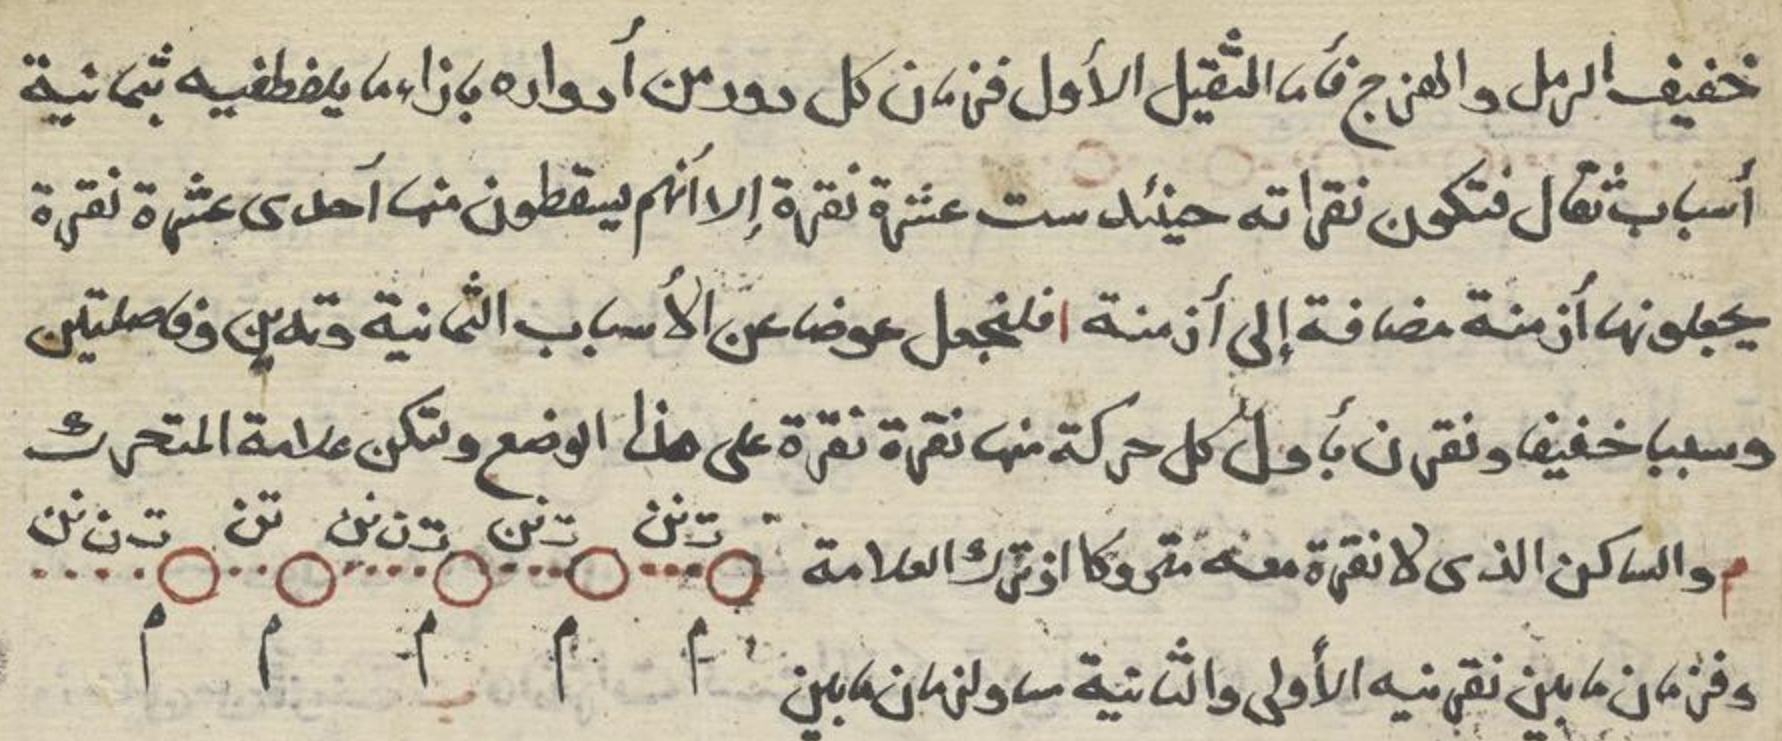 خفيف الرمل والهزج فأما الثقيل الأول فزمان كل دور من أدواره بازاء ما يلفظ فيه ثمانية
أسباب ثقال فتكون نقراته حينئد ست عشرة نقرة إلا أنهم يسقطون منها أحدى عشرة نقرة
يجعلونها أزمنة مضافة إلى أزمنة ا فلنجعل عوضا عن الأسباب الثمانية وتدين وفاصلتين
وسببا خفيفا ونقرن بأول كل حركة منها نقرة نقرة على هذا الوضع ولتكن علامة المتحرك
م والساكن الذى لا نقرة معه متروكا اذ ترك العلامة ت نن ت نن ت ن نن تن ت ن نن
م م م م م
وفزمان ما بين نقرتيه الأولى والثانية مساو لزمان ما بين